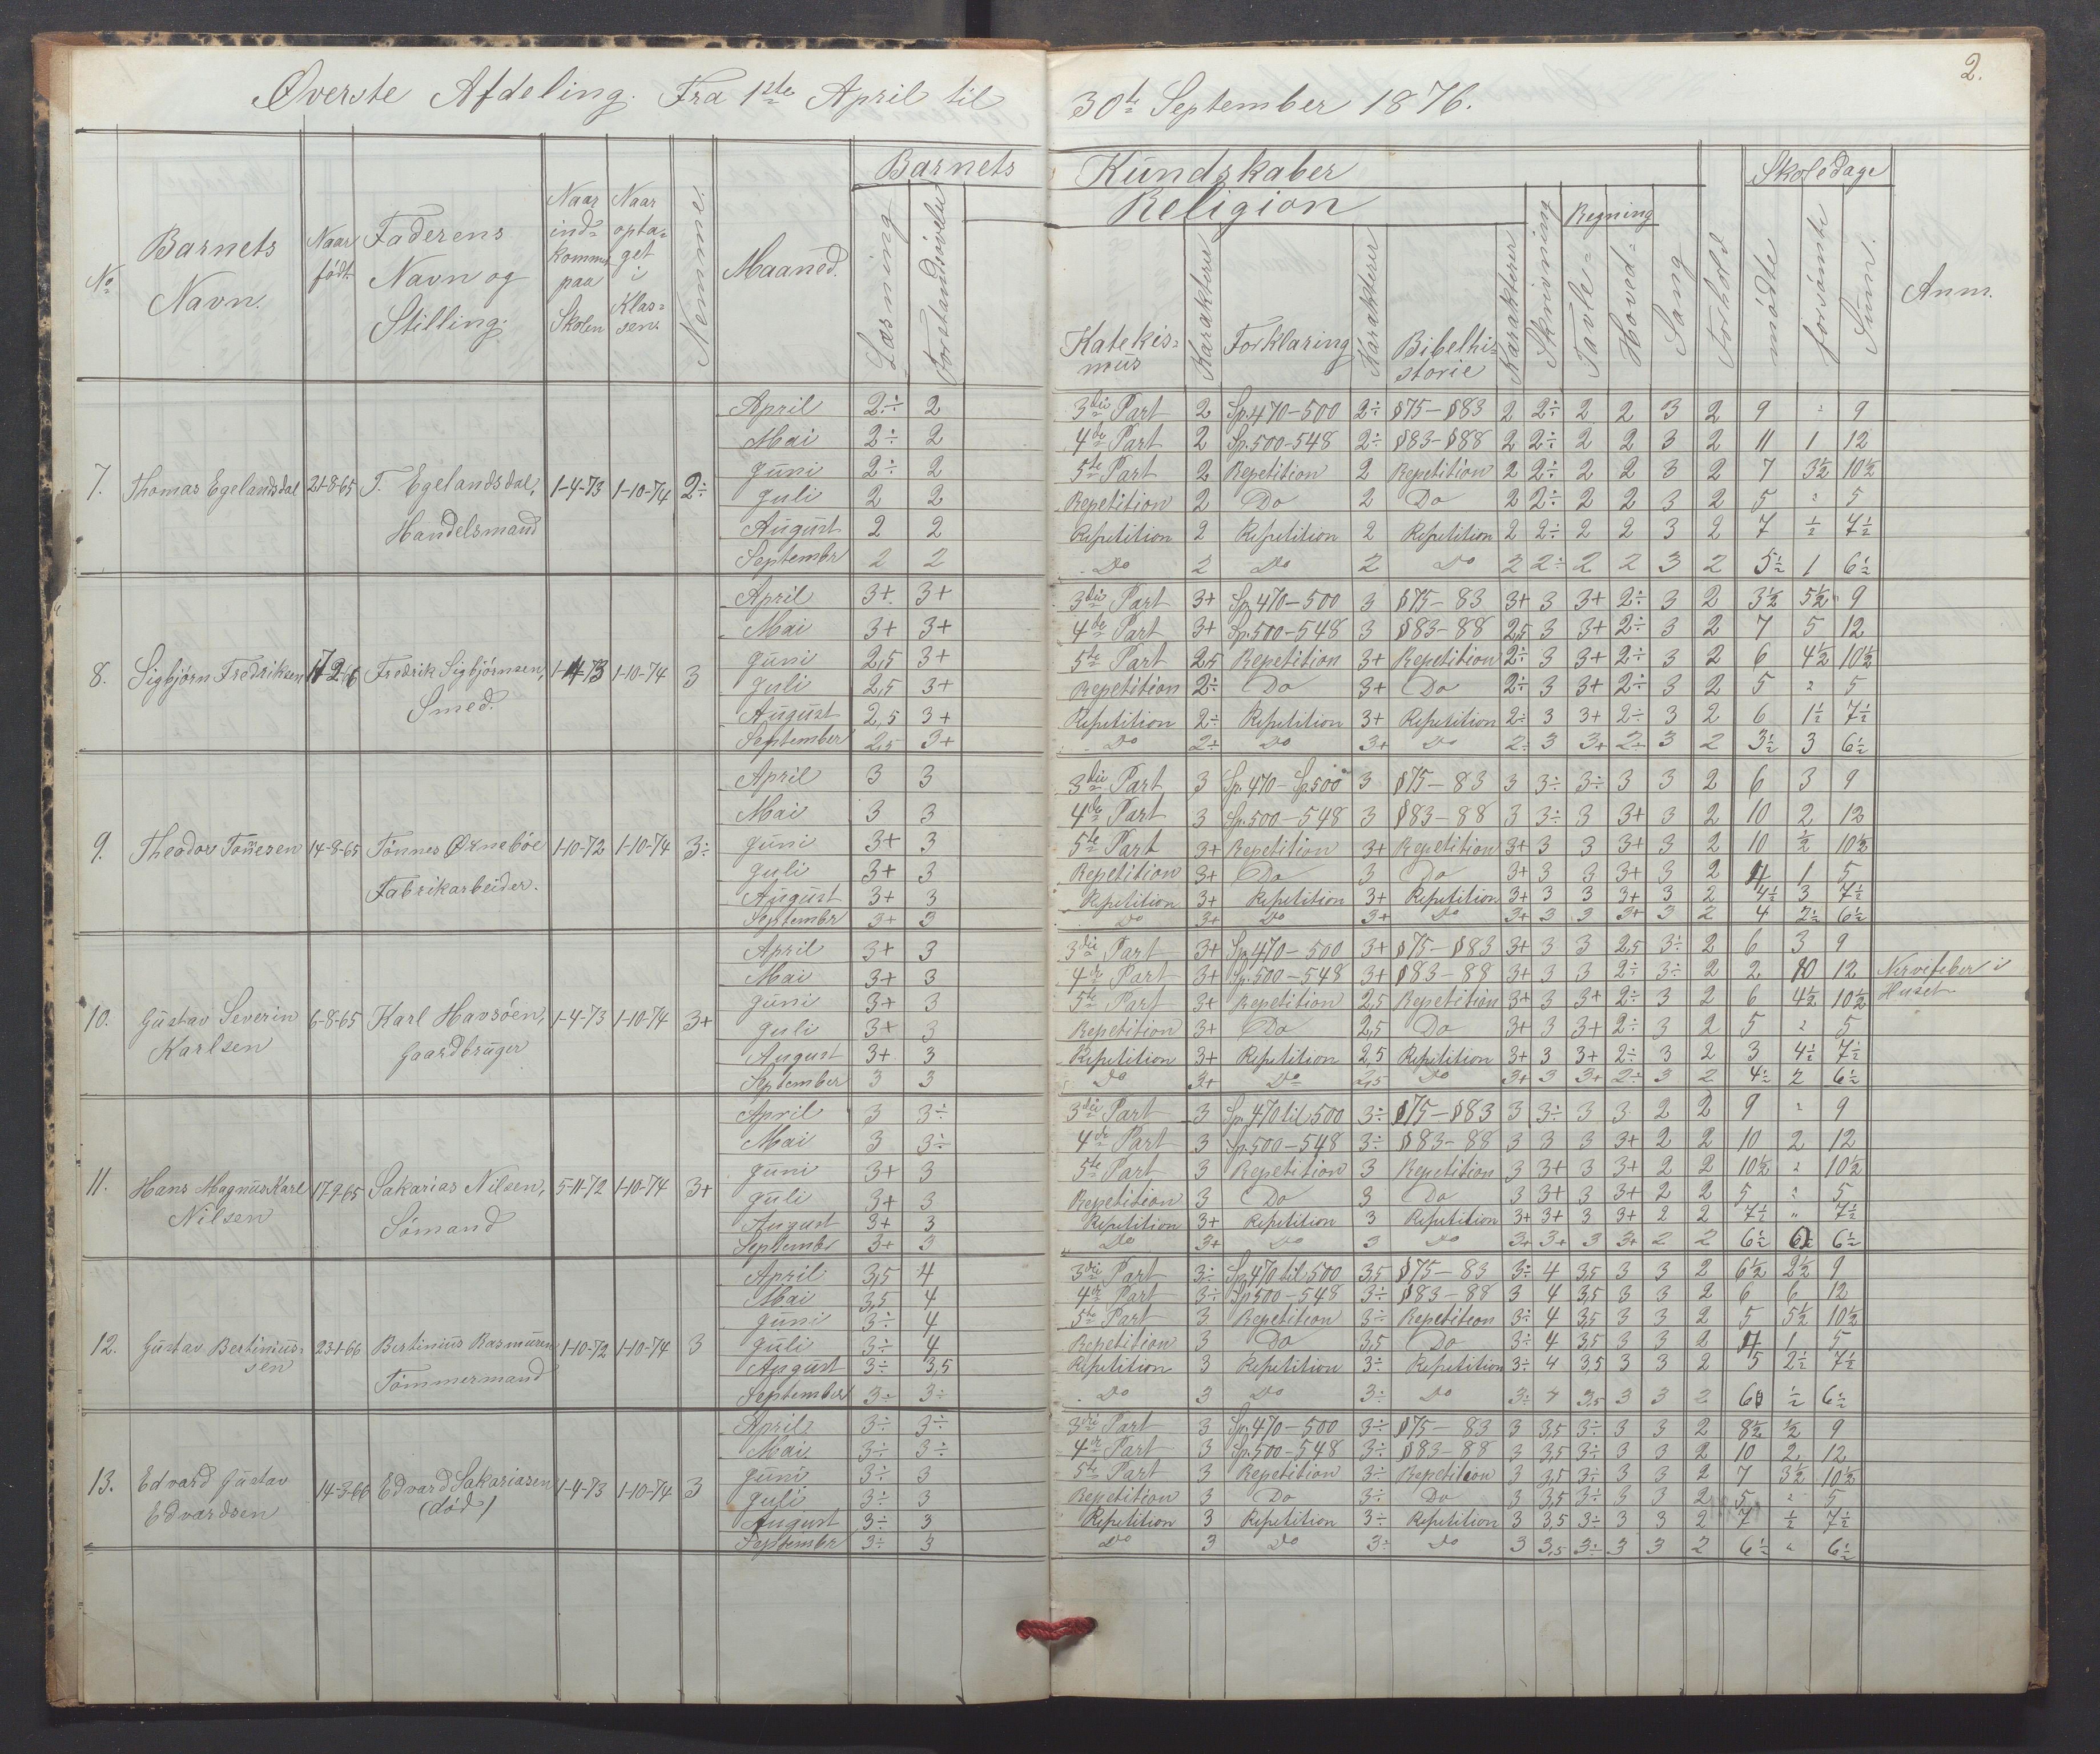 2.
Øverste Afdeling. Fra 1ste April til 30te September 1876.
Barnets Kundskaber
Skoledage
Religion
Regning
No
Barnets Navn.
Naar født
Faderens Navn og Stilling.
Naar ind= kommet paa Skolen
Naar opta= get i Klas= sen.
Nemme.
Maaned.
Læsning
Forstandsøvelse
Katekis= mus
Karakterer
Forklaring
Karakterer
Bibelhi= storie
Karakterer
Skrivning
Tavle=
Hoved=
Sang
Forhold.
mødte
forsømte
Sum.
Anm.
7. Thomas Egelandsdal 21-8-65 T. Egelandsdal, Handelsmand 1-4-73 1-10-74 2÷
April 2÷ 2 3die Part 2 Sp. 470-500 2÷ §75-§83 2 2÷ 2 2 3 2 9 " 9
Mai 2÷ 2 4de Part 2 Sp. 500-548 2÷ §83-§88 2 2÷ 2 2 3 2 11 1 12
Juni 2÷ 2 5te Part 2 Repetition 2 Repetition 2 2÷ 2 2 3 2 7 3½ 10½
Juli 2 2 Repetition 2 Do 2 Do 2 2÷ 2 2 3 2 5 " 5
August 2 2 Repetition 2 Repetition 2 Repetition 2 2÷ 2 2 3 2 7 ½ 7½
Septembr 2 2 Do 2 Do 2 Do 2 2÷ 2 2 3 2 5½ 1 6½
8. Sigbjørn Fredriksen Fredrik Sigbjørnsen, Smed. 1-4-73 1-10-74 3
April 3+ 3+ 3die Part 3+ Sp. 470-500 3 §75-83 3+ 3 3+ 2÷ 3 2 3½ 5½ 9
Mai 3+ 3+ 4de Part 3+ Sp. 500-548 3 §83-88 2,5 3 3+ 2÷ 3 2 7 5 12
Juni 2,5 3+ 5te Part 2,5 Repetition 3+ Repetition 2÷ 3 3+ 2÷ 3 2 6 4½ 10½
Juli 2,5 3+ Repetition 2÷ Do 3+ Do 2÷ 3 3+ 2÷ 3 2 5 " 5
August 2,5 3+ Repetition 2÷ Repetition 3+ Repetition 2÷ 3 3+ 2÷ 3 2 6 1½ 7½
September 2,5 3+ Do 2÷ Do 3+ Do 2÷ 3 3+ 2÷ 3 2 3½ 3 6½
9. Theodor Tonnesen 14-8-65 Tönnes Øxnebøe Fabrikarbeider. 1-10-72 1-10-74 3÷
April 3 3 3die Part 3 Sp. 470-Sp 500 3 §75-83 3 3÷ 3÷ 3 3 2 6 3 9
Mai 3 3 4de Part 3 Sp. 500-548 3 §83-88 3 3÷ 3 3+ 3 2 10 2 12
Juni 3+ 3 5te Part 3+ Repetition 3+ Repetition 3+ 3 3 3+ 3 2 10 ½ 10½
Juli 3+ 3 Repetition 3+ Do 3 Do 3+ 3 3 3+ 3 2 4 1 5
August 3+ 3 Repetition 3+ Repetition 3+ Repetition 3+ 3 3 3+ 3 2 4½ 3 7½
Septembr 3+ 3 Do 3+ Do 3+ Do 3+ 3 3 3+ 3 2 4 2½ 6½
10. Gustav Severin Karlsen 6-8-65 Karl Havsöen, Gaardbruger 1-4-73 1-10-74 3+
April 3+ 3 3die Part 3+ Sp. 470-500 3+ §75-§83 3+ 3 3 2,5 3÷ 2 6 3 9
Mai 3+ 3 4de Part 3+ Sp. 500-548 3+ §83-88 3+ 3 3 2÷ 3÷ 2 2 10 12 Nervefeber i Huset
Juni 3+ 3 5te Part 3+ Repetition 2,5 Repetition 3+ 3 3+ 2÷ 3 2 6 4½ 10½
Juli 3+ 3 Repetition 3+ Do 2,5 Do 3+ 3 3+ 2÷ 3 2 5 " 5
August 3+ 3 Repetition 3+ Repetition 2,5 Repetition 3+ 3 3+ 2÷ 3 2 3 4½ 7½
September 3 3 Do 3+ Do 2,5 Do 3+ 3 3+ 2÷ 3 2 4½ 2 6½
11. Hans Magnus Karl Nilsen 17-9-65 Sakarias Nilsen, Sömand 5-11-72 1-10-74 3+
April 3 3÷ 3die Part 3 Sp. 470 til 500 3÷ §75-§83 3 3÷ 3 3 2 2 9 " 9
Mai 3 3÷ 4de Part 3 Sp. 500-548 3÷ §83-88 3 3 3 3+ 2 2 10 2 12
Juni 3+ 3 5te Part 3 Repetition 3 Repetition 3 3+ 3 3+ 2 2 10½ " 10½
Juli 3+ 3 Repetition 3 Do 3 Do 3 3+ 3 3+ 2 2 5 " 5
August 3+ 3 Repetition 3+ Repetition 3 Repetition 3+ 3+ 3 3+ 2 2 7½ " 7½
Septembr 3+ 3 Do 3+ Do 3 Do 3+ 3+ 3 3+ 2 2 6½ 6½
12. Gustav Bertinius= sen 23-1-66 Bertinius Rasmusen Tömmermand 1-10-72 1-10-74 3
April 3,5 4 3die Part 3÷ Sp. 470 til 500 3,5 §75-83 3÷ 4 3,5 3 3 2 6½ 2½ 9
Mai 3,5 4 4de Part 3÷ Sp 500-548 3÷ §83-88 3 4 3,5 3 3 2 6 6 12
Juni 3÷ 4 5te Part 3 Repetition 3÷ Repetition 3÷ 4 3,5 3 3 2 5 5½ 10½
Juli 3÷ 4 Repetition 3 Do 3,5 Do 3÷ 4 3,5 3 3 2 4 1 5
August 3÷ 3,5 Repetition 3 Repetition 3÷ Repetition 3÷ 4 3,5 3 3 2 5 2½ 7½
September 3÷ 3÷ Do 3 Do 3÷ Do 3÷ 4 3,5 3 3 2 6 ½ 6½
13. Edvard Gustav Edvardsen 14-3-66 Edvard Sakariasen (død) 1-4-73 1-10-74 3
April 3÷ 3÷ 3die Part 3 Sp. 470-500 3÷ §75-83 3 3,5 3÷ 3 3 2 8½ ½ 9
Mai 3÷ 3÷ 4de Part 3 Sp. 500-548 3÷ §83-88 3 3,5 3÷ 3 3 2 10 2 12
Juni 3÷ 3 5te Part 3 Repetition 3÷ Repetition 3 3,5 3÷ 3 3 2 7 3½ 10½
Juli 3÷ 3 Repetition 3 Do 3÷ Do 3 3,5 3÷ 3 3 2 5 " 5
August 3÷ 3 Repetition 3 Repetition 3÷ Repetition 3 3,5 3÷ 3 3 2 7 ½ 7½
Septembr 3÷ 3 Do 3 Do 3÷ Do 3 3,5 3÷ 3 3 2 6½ " 6½